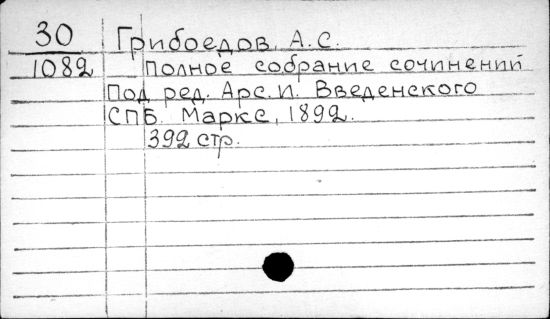 30 Грибоедов, А.С.
1082 Полное собрание сочинений
Под ред. Арс. И. Введенского
СПБ. Маркс, 1892.
392 стр.